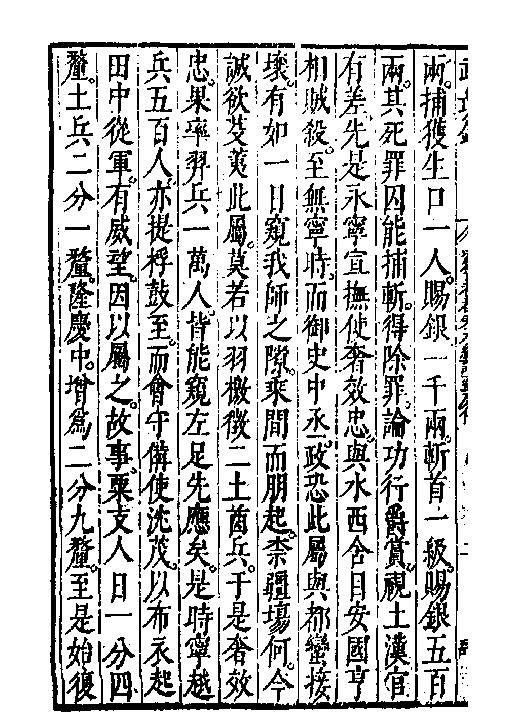 兩。捕獲生口一人。賜銀一千兩。斬首一級。賜銀五百
兩。其死罪囚能捕斬。得除罪。論功行爵賞。視土漢官
有差。先是永寧宣撫使奢效忠。與水西舍目安國亨
相賊殺。至無寧時。而御史中丞一政恐此屬與都蠻接
壤。有如一日窺我師之隙。乘間而朋起。柰疆埸何。今
誠欲芟荑此屬。莫若以羽檄徵二土酋兵。于是奢效
忠。果率羿兵一萬人。皆能窺左足先應矣。是時寧越
兵五百人。亦提桴鼓至。而會守備使沈茂。以布衣起
田中從軍。有威望。因以屬之。故事。粟支人日一分四
釐。土兵二分一釐。隆慶中。增爲二分九釐。至是始復